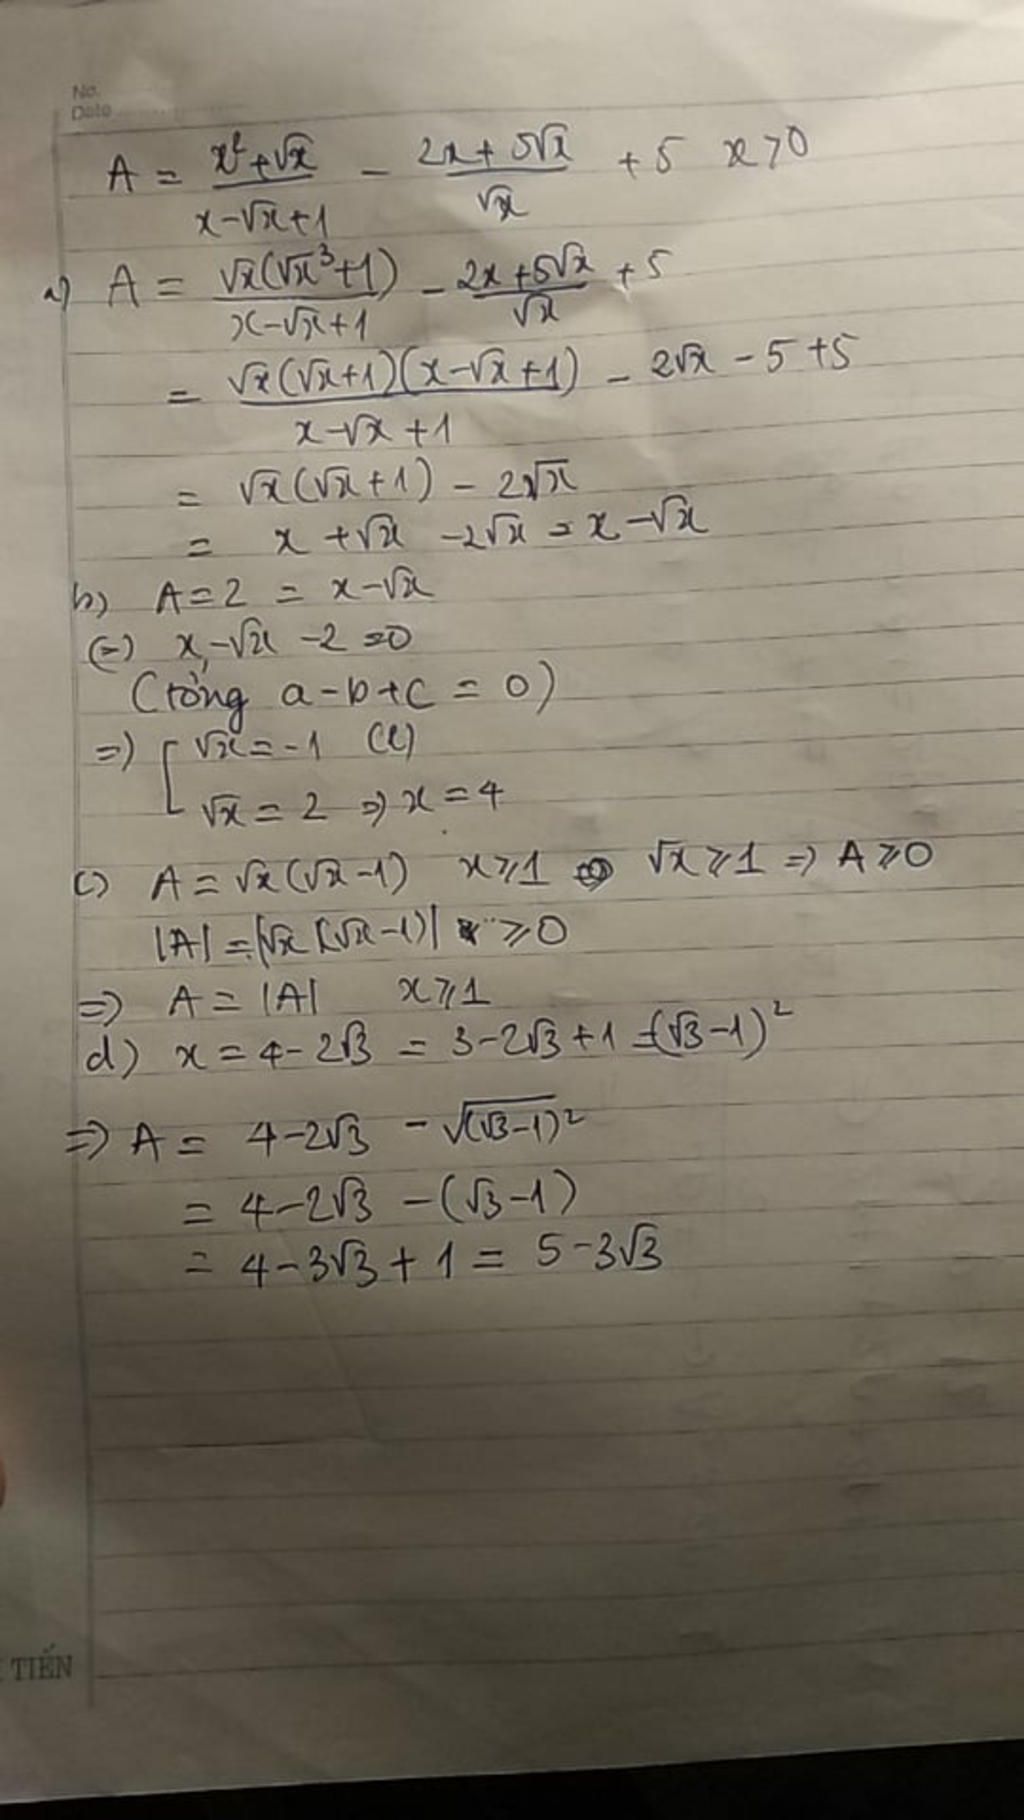 No.
Date
A = \frac{x^2+√x}{x-√x+1} - \frac{2x+5√x}{√x} + 5 x>0
a) A = \frac{√x(√x^3+1)}{x-√x+1} - \frac{2x+5√x}{√x} + 5
= \frac{√x(√x+1)(x-√x+1)}{x-√x+1} - 2√x - 5 + 5
= √x(√x+1) - 2√x
= x + √x - 2√x = x - √x
b) A = 2 = x - √x
(=) x - √x - 2 = 0
(tổng a - b + c = 0)
=) [ √x = -1 (l)
√x = 2 => x = 4
c) A = √x(√x - 1) x ≥ 1 √x ≥ 1 => A ≥ 0
|A| = |√x(√x - 1)| ≥ 0
=> A = |A| x ≥ 1
d) x = 4 - 2√3 = 3 - 2√3 + 1 = (√3 - 1)^2
=> A = 4 - 2√3 - √(√3 - 1)^2
= 4 - 2√3 - (√3 - 1)
= 4 - 3√3 + 1 = 5 - 3√3
TIẾN